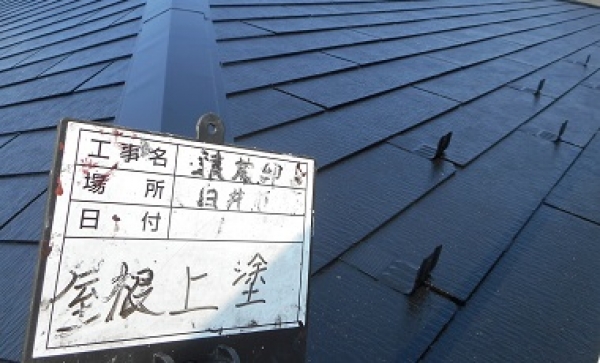 工事名
場所 白井
日付
屋根上塗